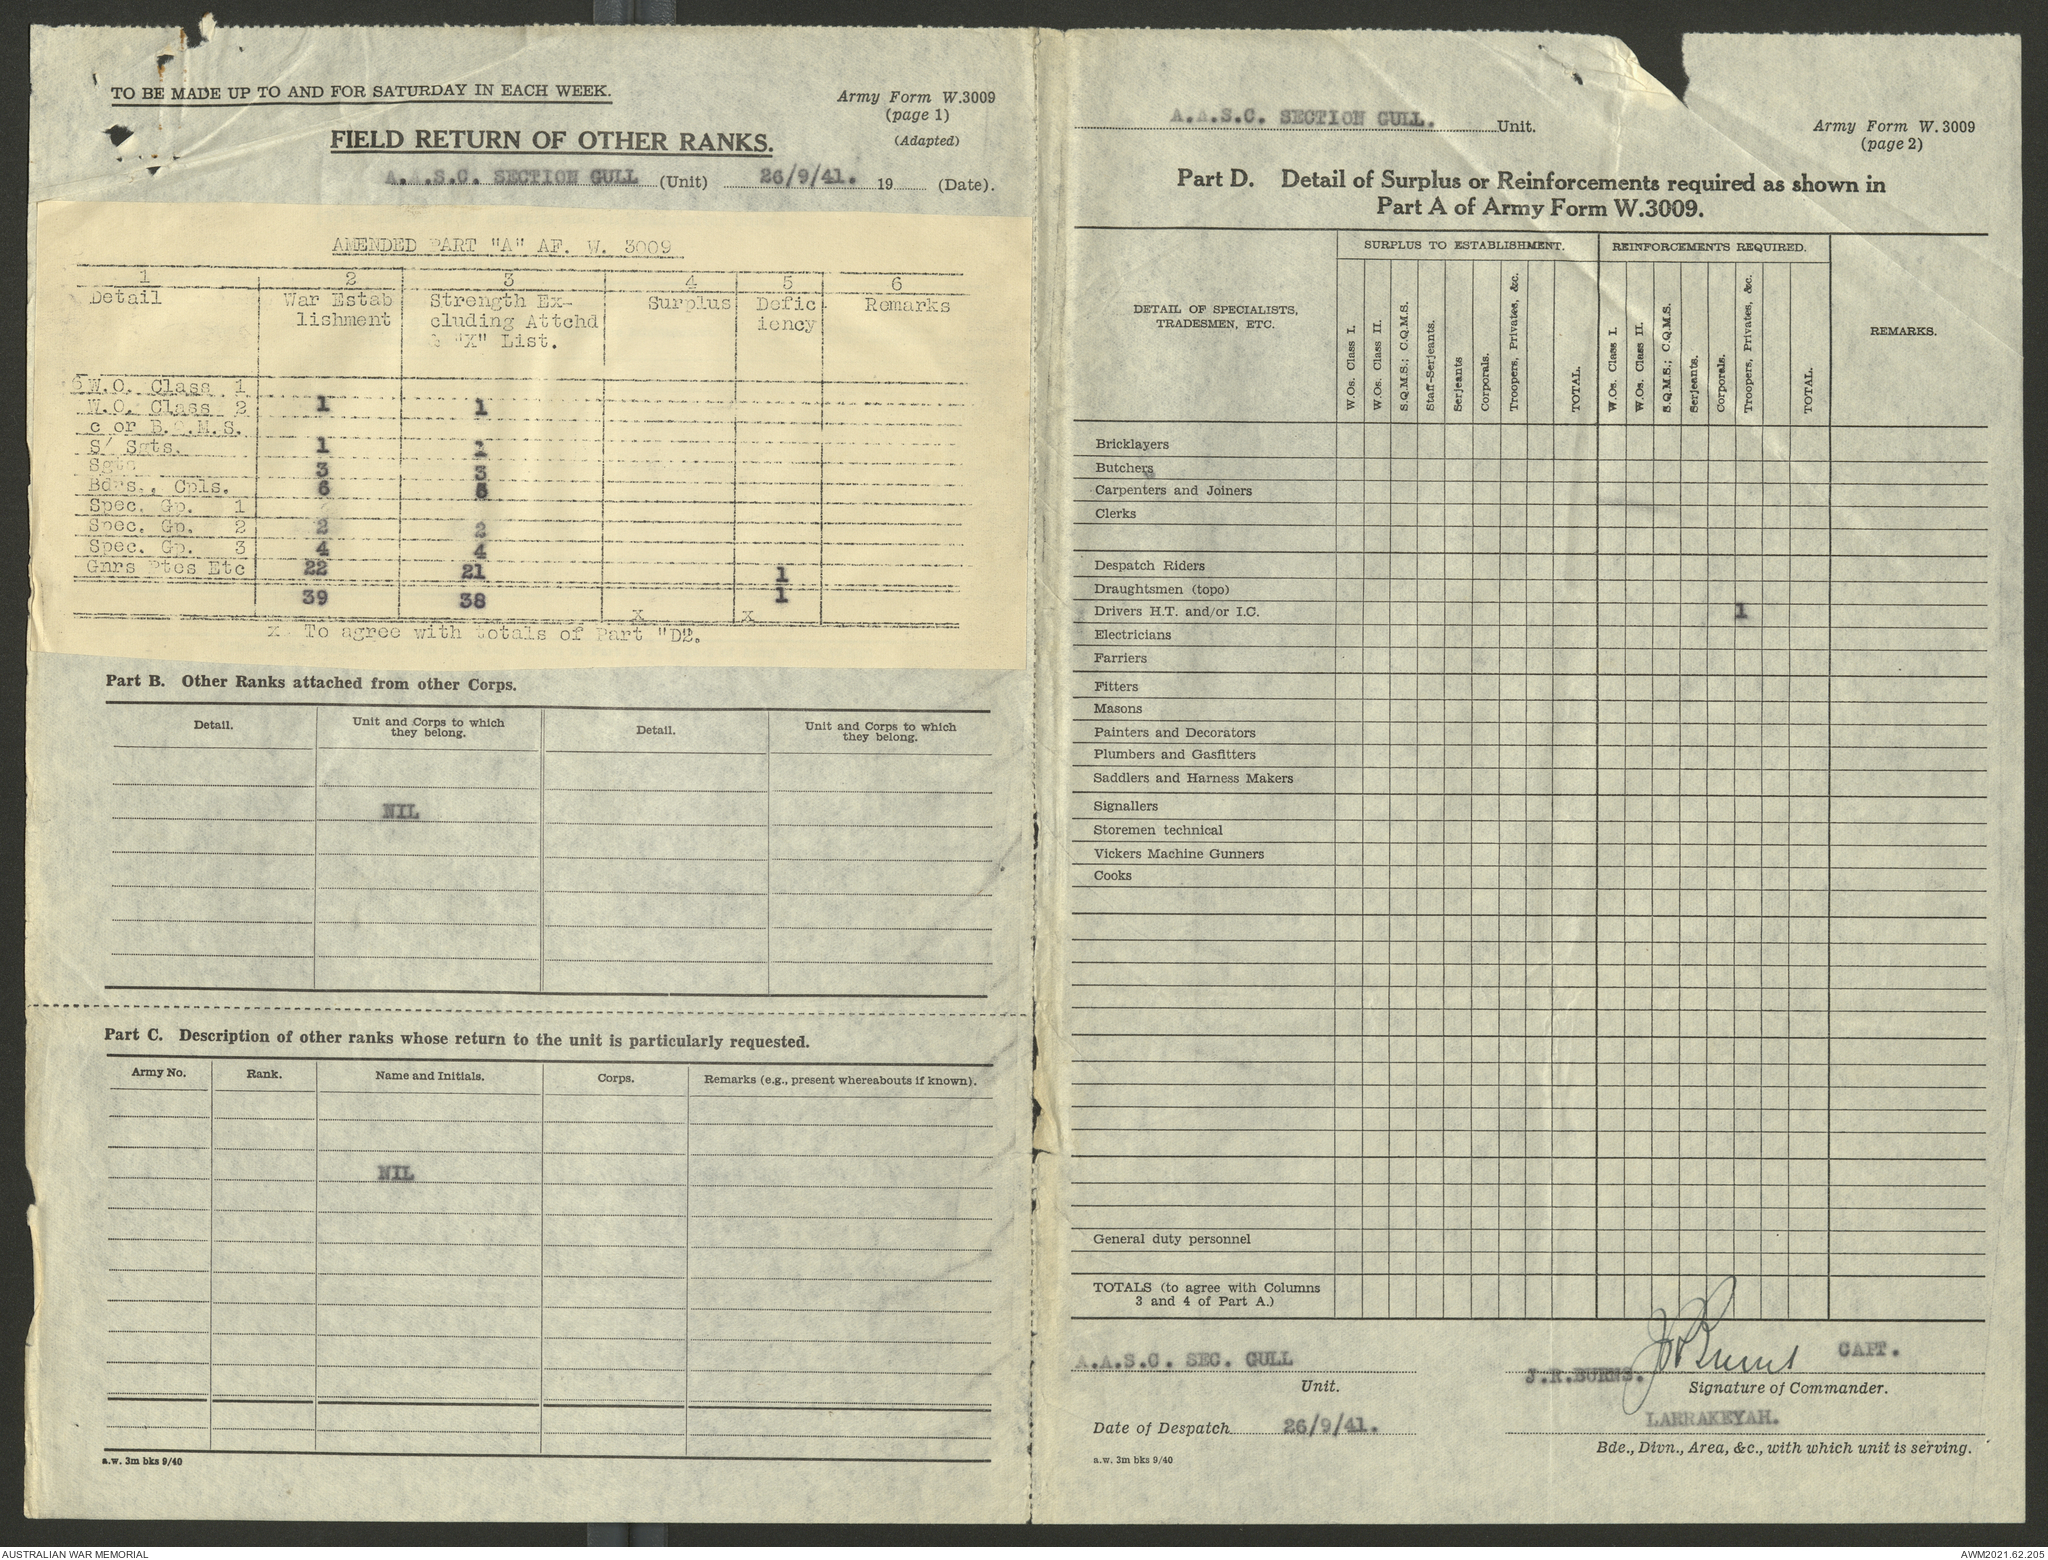 TO BE MADE UP TO AND FOR SATURDAY IN EACH WEEK.
Army Form W.3009
(page 1)
(Adapted)
FIELD RETURN OF OTHER RANKS.
A.A.S.C. SECTION GULL (Unit) 26/9/41. 19 (Date).
AMENDED PART "A" AF. W. 3009
1 2 3 4 5 6
Detail War Estab Strength Ex- Surplus Defic Remarks
lishment cluding Attchd iency
& "X" List.
W.O. Class 1
W.O. Class 2 1 1
c or B.Q.M.S.
S/ Sgts. 1
Sgts 3 3
Bdrs., Cpls. 6
Spec. Gp. 1
Spec. Gp. 2 2 2
Spec. Gp. 3 4 4
Gnrs Ptes Etc 22 21 1
39 38 1
X X
x. To agree with totals of Part "D2.
Part B. Other Ranks attached from other Corps.
Detail. Unit and Corps to which they belong. Detail. Unit and Corps to which they belong.
NIL
Part C. Description of other ranks whose return to the unit is particularly requested.
Army No. Rank. Name and Initials. Corps. Remarks (e.g., present whereabouts if known).
NIL
a.w. 3m bks 9/40
A.A.S.C. SECTION GULL. Unit.
Army Form W.3009
(page 2)
Part D. Detail of Surplus or Reinforcements required as shown in
Part A of Army Form W.3009.
DETAIL OF SPECIALISTS,
TRADESMEN, ETC.
SURPLUS TO ESTABLISHMENT. REINFORCEMENTS REQUIRED.
REMARKS.
W.Os. Class I.
W.Os. Class II.
S.Q.M.S.; C.Q.M.S.
Staff-Serjeants.
Serjeants
Corporals.
Troopers, Privates, &c.
TOTAL.
W.Os. Class I.
W.Os. Class II.
S.Q.M.S.; C.Q.M.S.
Serjeants.
Corporals.
Troopers, Privates, &c.
TOTAL.
Bricklayers
Butchers
Carpenters and Joiners
Clerks
Despatch Riders
Draughtsmen (topo)
Drivers H.T. and/or I.C. 1
Electricians
Farriers
Fitters
Masons
Painters and Decorators
Plumbers and Gasfitters
Saddlers and Harness Makers
Signallers
Storemen technical
Vickers Machine Gunners
Cooks
General duty personnel
TOTALS (to agree with Columns
3 and 4 of Part A.)
A.A.S.C. SEC. GULL
Unit.
J.R.BURNS. JR Burns CAPT.
Signature of Commander.
Date of Despatch 26/9/41.
LARRAKEYAH.
Bde., Divn., Area, &c., with which unit is serving.
a.w. 3m bks 9/40
AUSTRALIAN WAR MEMORIAL
AWM2021.62.205